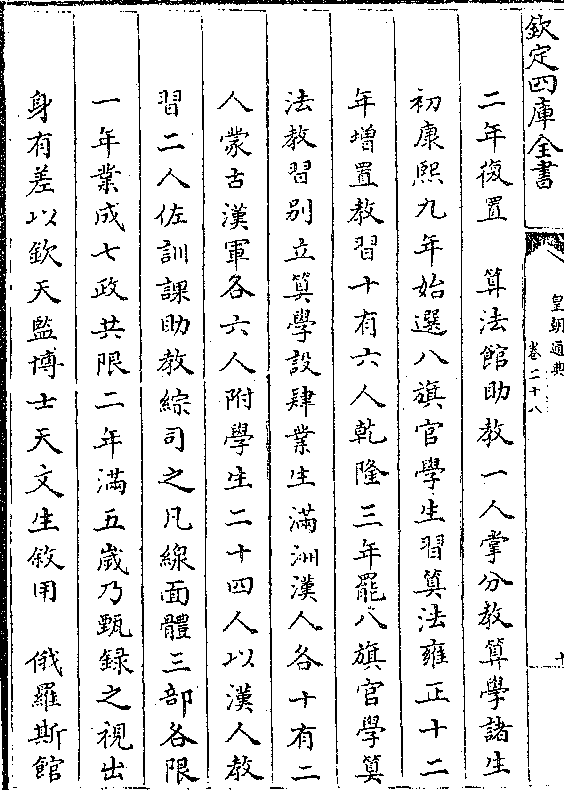 欽定四庫全書
皇朝通典
卷二十八
二年復置　算法館助教一人掌分教算學諸生
初康熙九年始選八旗官學生習算法雍正十二
年增置教習十有六人乾隆三年罷八旗官學算
法教習別立算學設肆業生滿洲漢人各十有二
人蒙古漢軍各六人附學生二十四人以漢人教
習二人佐訓課助教綜司之凡線面體三部各限
一年業成七政共限二年滿五歲乃甄録之視出
身有差以欽天監博士天文生敘用　俄羅斯館